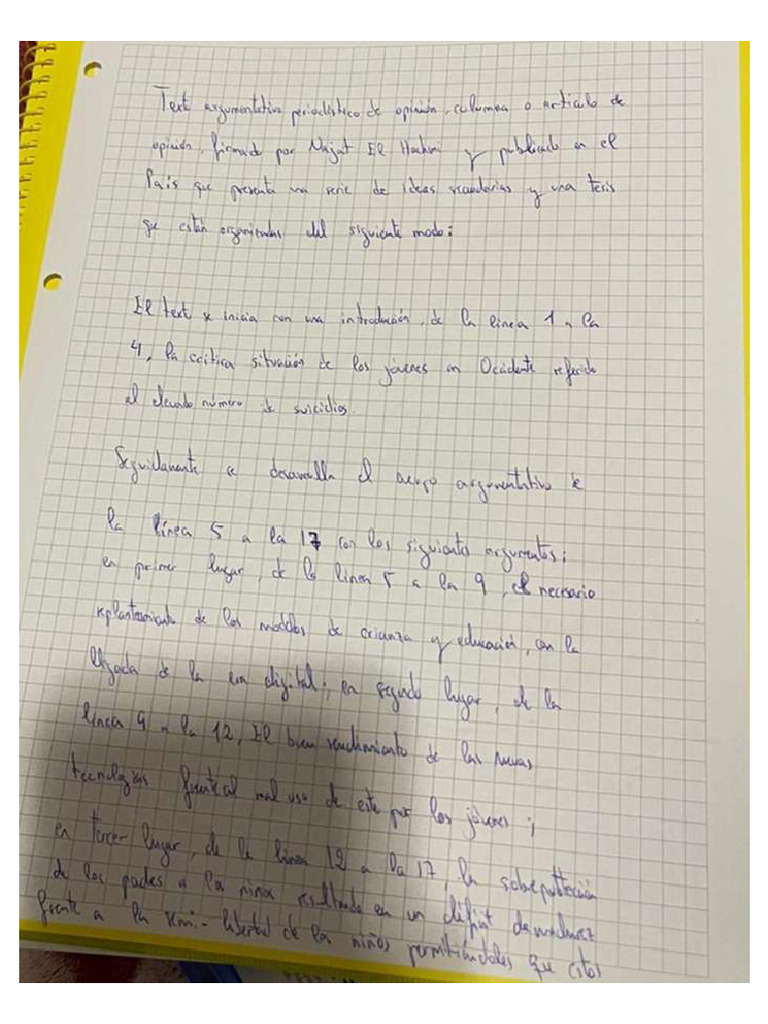 Texto argumentativo periodístico de opinión, columna o artículo de
opinión, firmado por Najat El Hachmi y publicado en el
País que presenta una serie de ideas secundarias y una tesis
que están organizadas del siguiente modo:
El texto se inicia con una introducción, de la línea 1 a la
4, la crítica situación de los jóvenes en Occidente referido
al elevado número de suicidios.
Seguidamente se desarrolla el cuerpo argumentativo de
la línea 5 a la 17 con los siguientes argumentos:
en primer lugar, de la línea 5 a la 9, el necesario
replanteamiento de los modelos de crianza y educación, con la
llegada de la era digital; en segundo lugar, de la
línea 9 a la 12, El buen rendimiento de las nuevas
tecnologías frente al mal uso de este por los jóvenes;
en tercer lugar, de la línea 12 a la 17, la sobreprotección
de los padres a los niños resultado en un déficit de madurez
frente a la semi-libertad de los niños permitiéndoles que estos